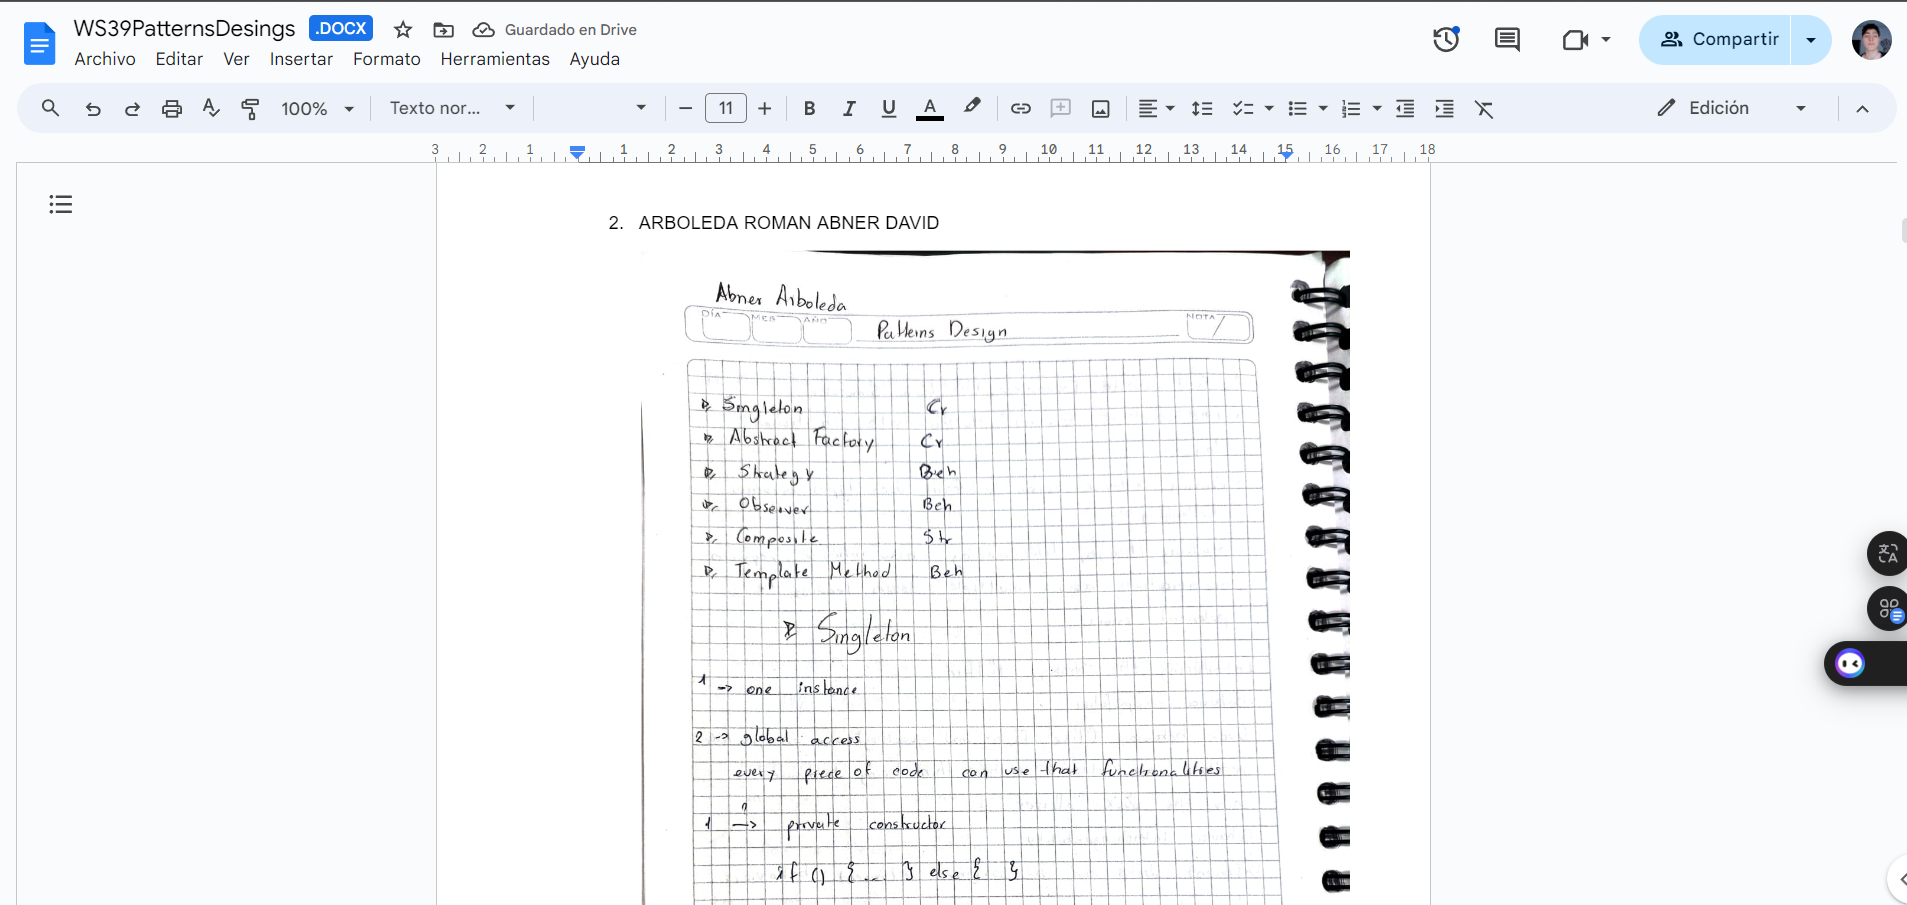 WS39PatternsDesings .DOCX Guardado en Drive
Archivo Editar Ver Insertar Formato Herramientas Ayuda
Compartir
100% Texto nor... 11 Edición
3 2 1 1 2 3 4 5 6 7 8 9 10 11 12 13 14 15 16 17 18
2. ARBOLEDA ROMAN ABNER DAVID
Abner Arboleda
DÍA MES AÑO Patterns Design NOTA
Singleton Cr
Abstract Factory Cr
Strategy Beh
Observer Beh
Composite Str
Template Method Beh
Singleton
1 -> one instance
2 -> global access
every piece of code can use that functionalities
?
1 -> private constructor
if () { ... } else { }